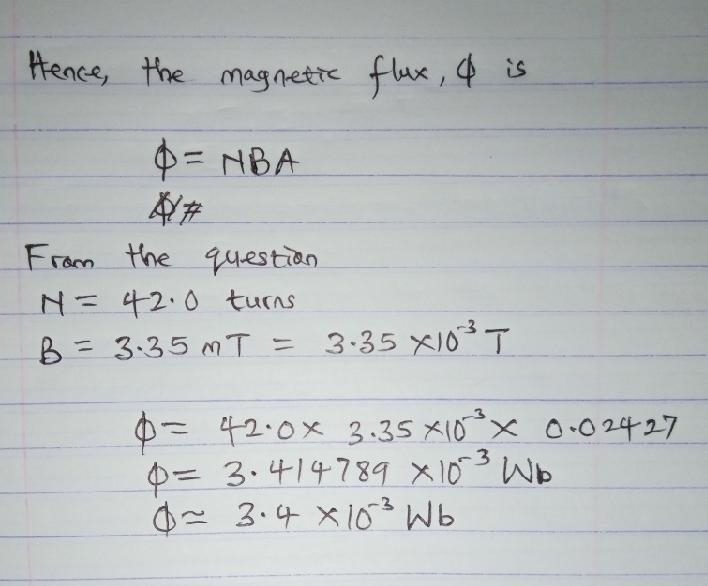 Hence, the magnetic flux, ϕ is
ϕ = NBA
From the question
N = 42.0 turns
B = 3.35 mT = 3.35 ×10⁻³ T
ϕ = 42.0 × 3.35 ×10⁻³ × 0.02427
ϕ = 3.414789 ×10⁻³ Wb
ϕ ≃ 3.4 ×10⁻³ Wb